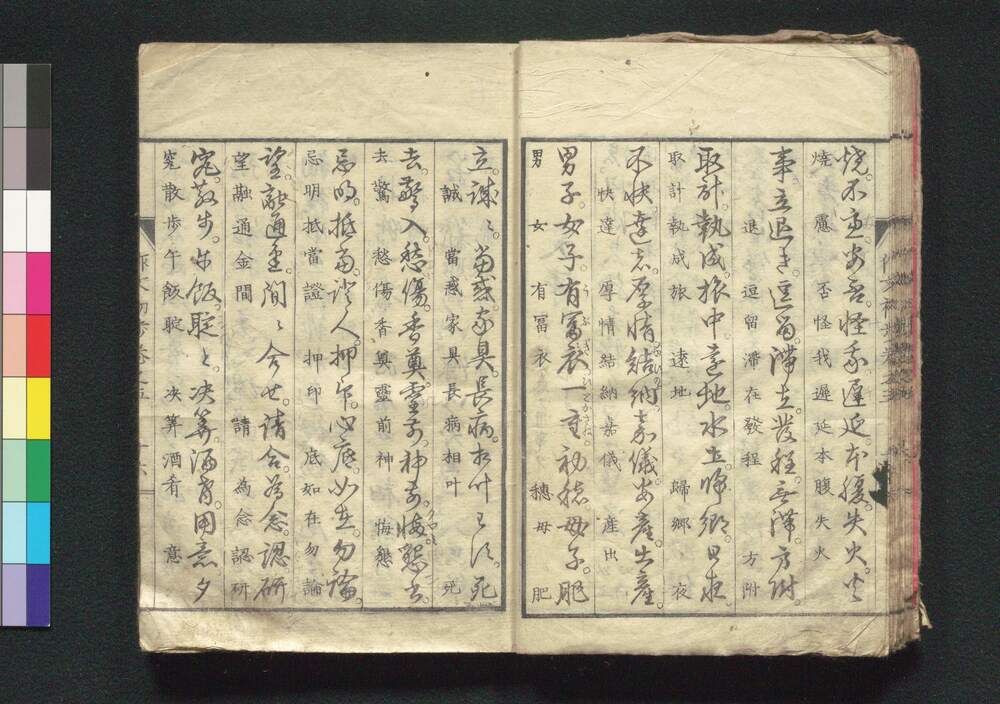 焼。不慮安否。怪我遅延本腹。失火。火
焼　慮　否怪我遲延本腹失火
事立退き逗留。滞在發程無滞。方附。
退　逗留滯在發程　方附
取計。執成。旅中遠地。水土帰郷。日夜
取計執成旅　遠地　歸郷　夜
不快達者。厚情結納。嘉儀。安産。出産。
快達　厚情結納嘉儀　産出
男子。女子。有冨。衣一重初穂母子。肥
男　女　有冨　衣　穗母　肥
立。誠ニ。當惑。家具。長病。相叶
誠　當惑家具長病相叶　死
去。驚入。愁傷。香奠靈前。神前。悔。懇
去驚　愁傷香奠靈前神　悔懇
忌明。抵當。證人。押印。心底。如在。勿論。
忌明抵當證　押印　底如在勿論
望。融通金。間ニ合せ。請合。為念。認研
望融通金間　請　為念認研
究。散歩。午飯。聢と。决算。酒肴。用意夕
究散歩午飯聢　决算酒肴　意